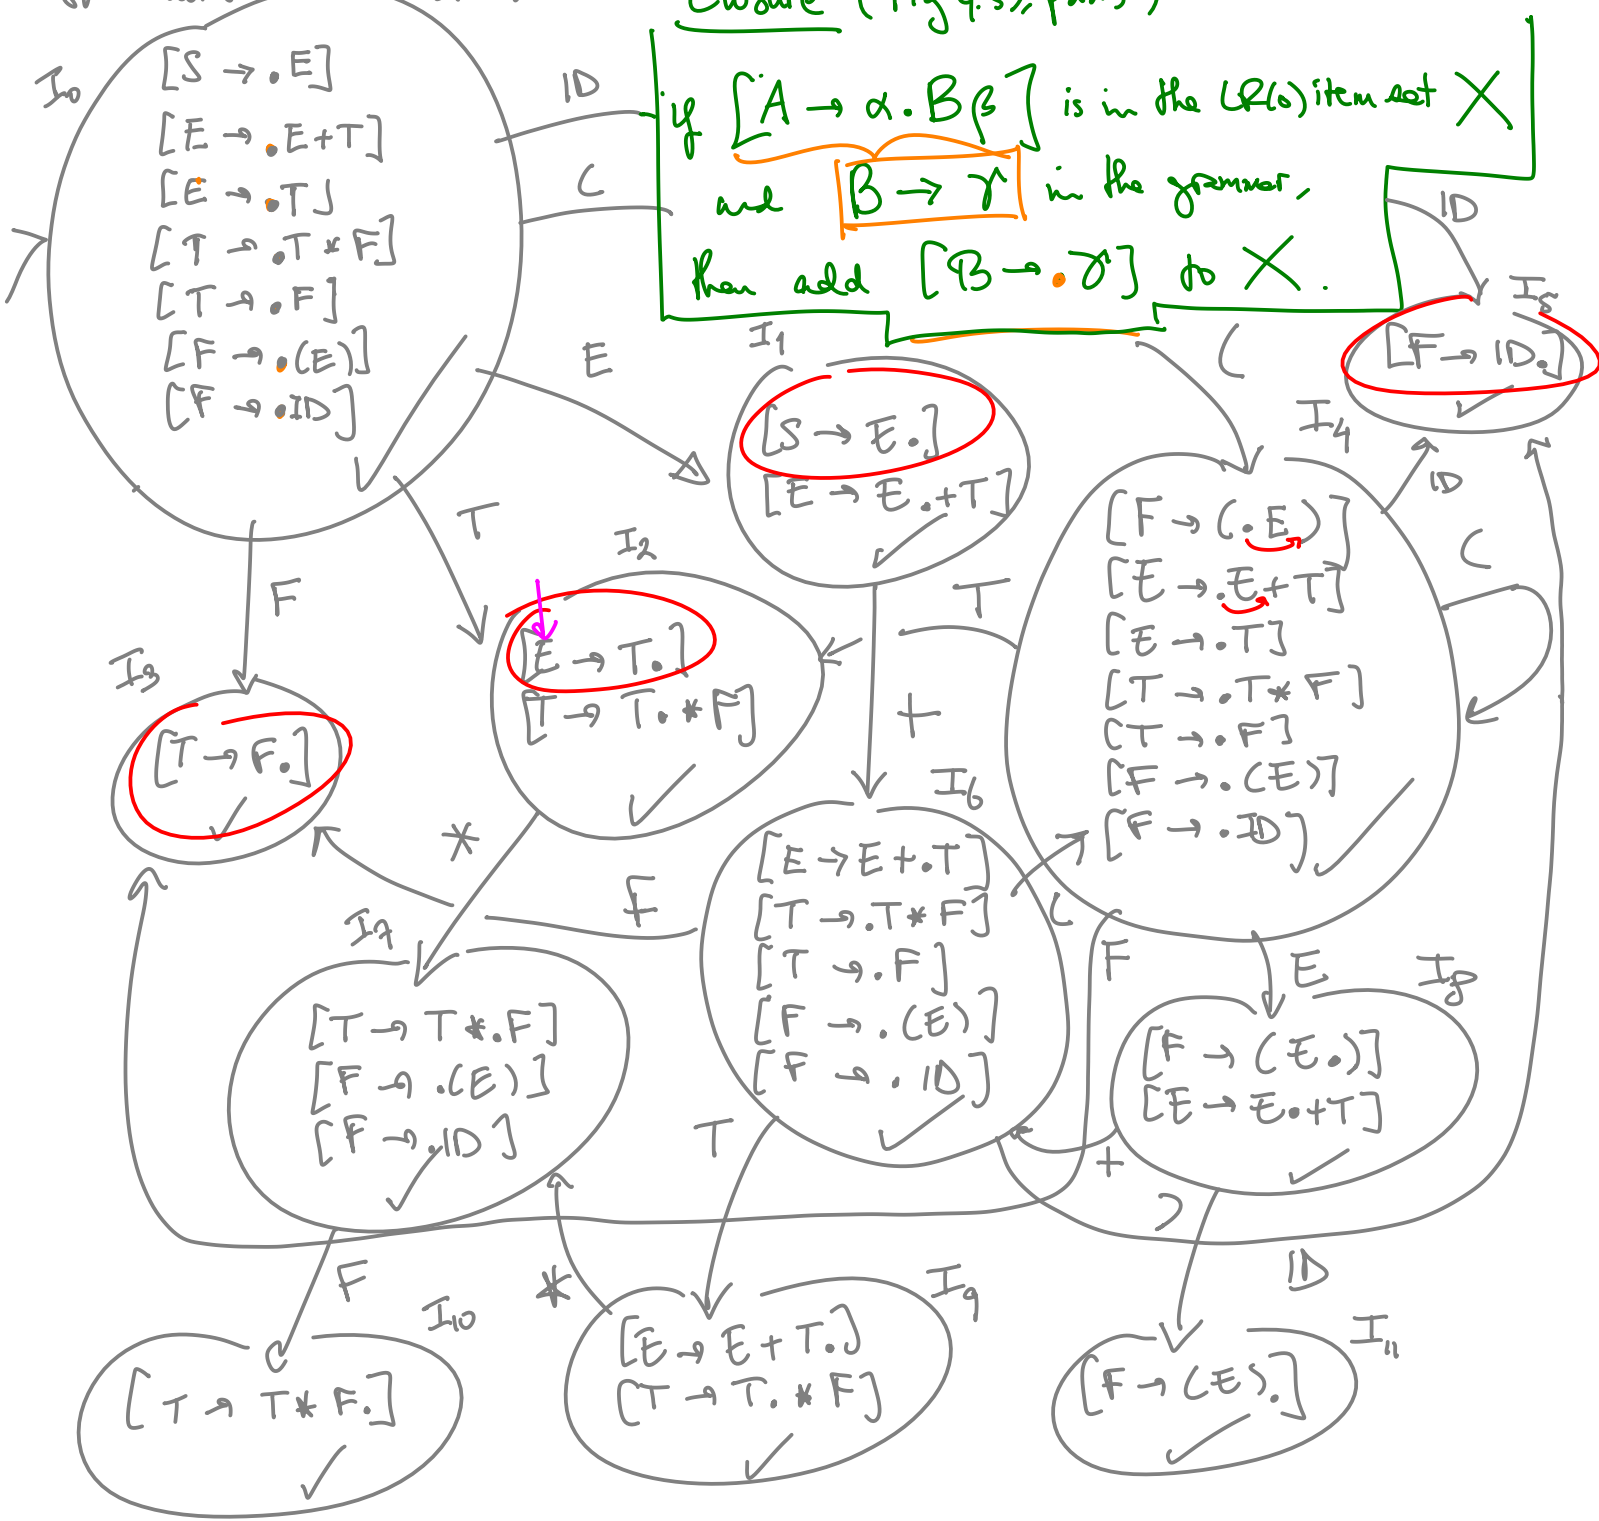 Closure (Fig 4.32,
if [A → α.Bβ] is in the LR(0) item set X
and [B → γ] in the grammar,
then add [B → .γ] to X.
I0
[S → .E]
[E → .E+T]
[E → .T]
[T → .T * F]
[T → .F]
[F → .(E)]
[F → .ID]
ID
(
E
T
F
I1
[S → E.]
[E → E.+T]
+
I2
[E → T.]
[T → T.*F]
*
I3
[T → F.]
ID
I5
[F → ID.]
(
I4
[F → (.E)]
[E → .E+T]
[E → .T]
[T → .T*F]
[T → .F]
[F → .(E)]
[F → .ID]
ID
(
T
F
E
I6
[E → E+.T]
[T → .T*F]
[T → .F]
[F → .(E)]
[F → .ID]
F
(
T
ID
I7
[T → T*.F]
[F → .(E)]
[F → .ID]
F
I8
[F → (E.)]
[E → E.+T]
+
)
I10
[T → T*F.]
*
I9
[E → E+T.]
[T → T.*F]
I11
[F → (E).]